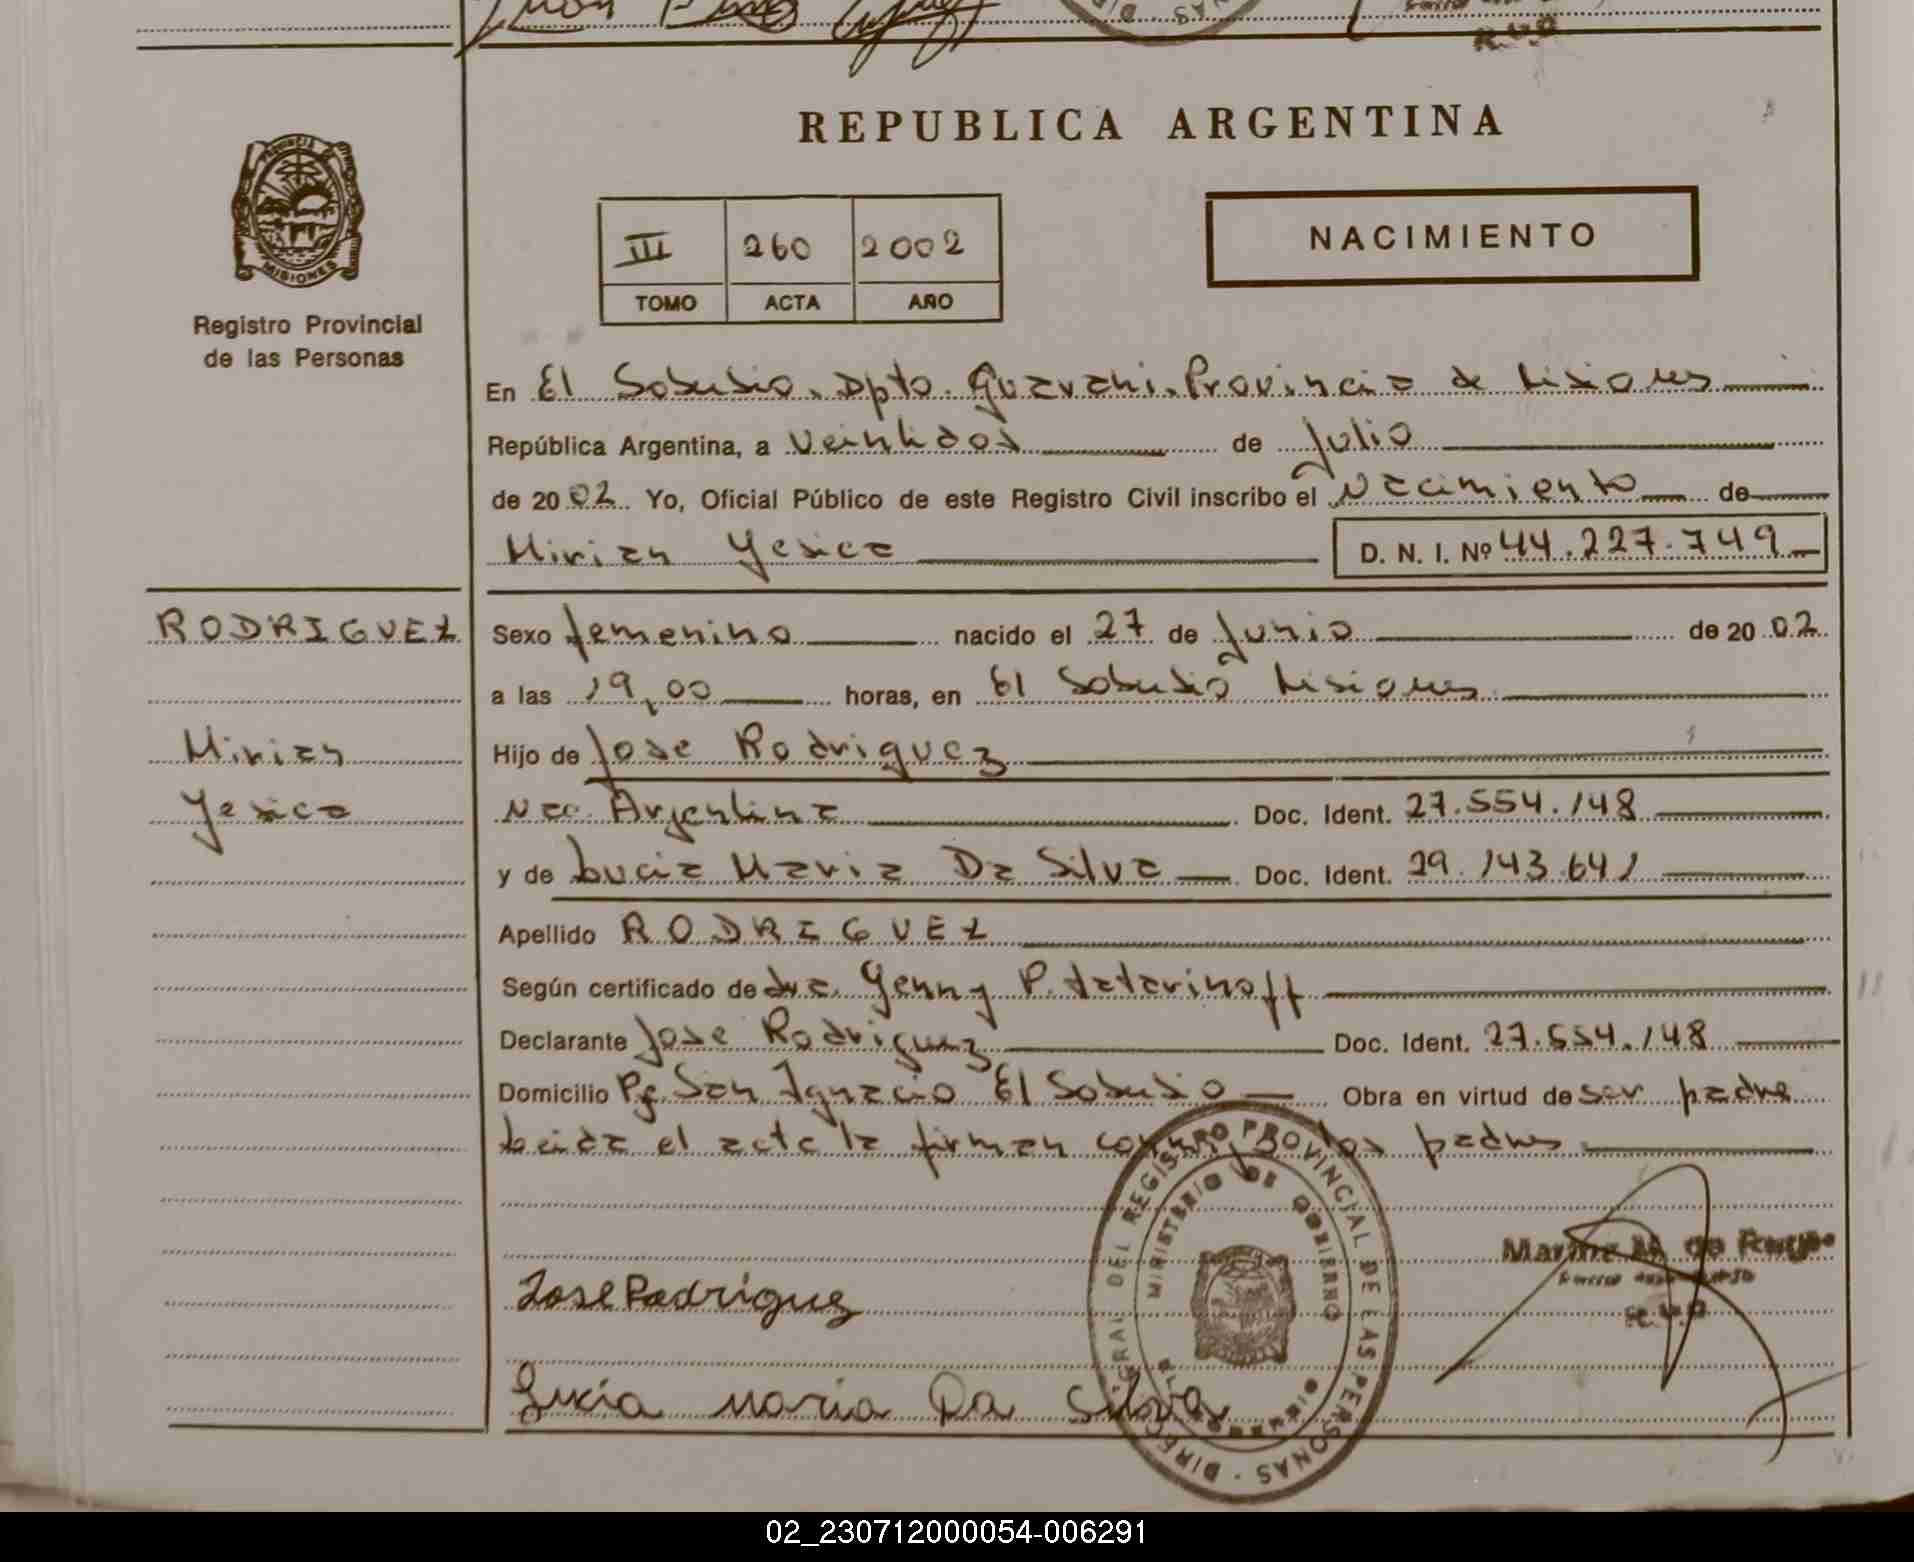 REPUBLICA ARGENTINA
PROVINCIA DE
MISIONES
Registro Provincial
de las Personas
III 260 2002
TOMO ACTA AÑO
NACIMIENTO
En El Soberbio. Dpto. Guarani. Provincia de Misiones
República Argentina, a Veintidos de Julio
de 20 02 Yo, Oficial Público de este Registro Civil inscribo el Nacimiento de
Mirian Yesica D. N. I. Nº 44.227.749
RODRIGUEZ
Mirian
Yesica
Sexo femenino nacido el 27 de Junio de 20 02
a las 19,00 horas, en El Soberbio Misiones
Hijo de Jose Rodriguez
Nac. Argentina Doc. Ident. 27.554.148
y de Lucia Maria Da Silva Doc. Ident. 29.143.641
Apellido RODRIGUEZ
Según certificado de dra. Genny P. Tatarinoff
Declarante Jose Rodriguez Doc. Ident. 27.554.148
Domicilio Pje. San Ignacio El Soberbio Obra en virtud de ser padre
Leida el acta la firman conmigo los padres
Jose Rodriguez
Lucia Maria Da Silva
DIRECC. GRAL DEL REGISTRO PROVINCIAL DE LAS PERSONAS
MINISTERIO DE GOBIERNO
02_230712000054-006291